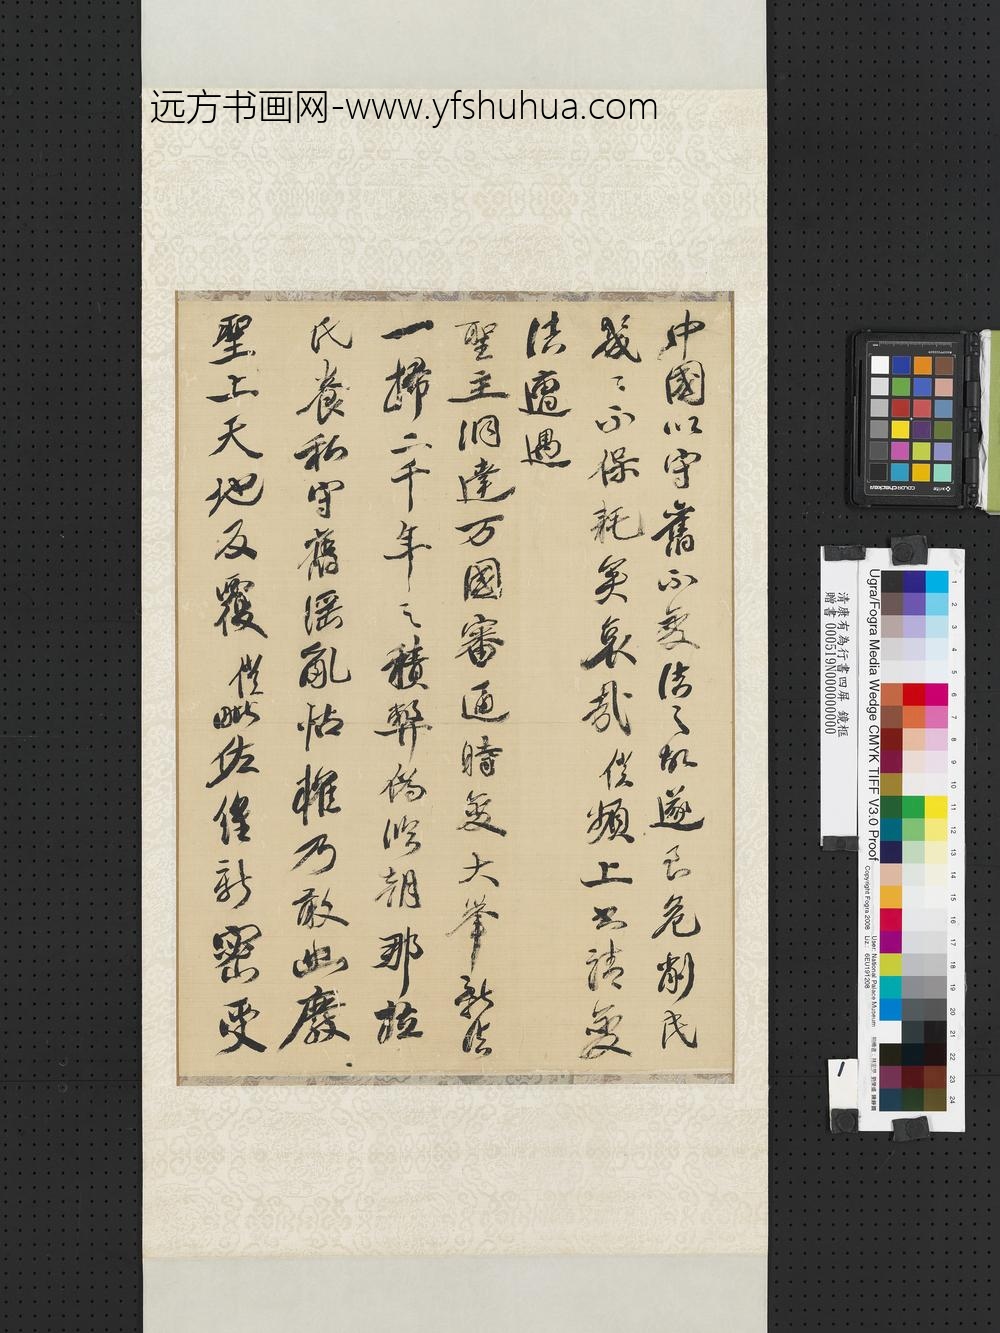 远方书画网-www.yfshuhua.com
中國以守舊不變法之故遂召危削民
幾幾不保耗矣哀哉僕頻上書請變
法遭遇
聖主洞達万國審通時變大舉新法
一掃二千年之積弊偽臨朝那拉
氏養私守舊淫亂怙權乃敢幽廢
聖上天地反覆僕毗佐維新密受
清康有為行書四屏 鏡框
贈書 000519N000000000
Ugra/Fogra Media Wedge CMYK TIFF V3.0 Proof
Copyright Fogra 2008
User: National Palace Museum
1
2
3
4
5
6
7
8
9
10
11
12
13
14
15
16
17
18
19
20
21
22
23
24